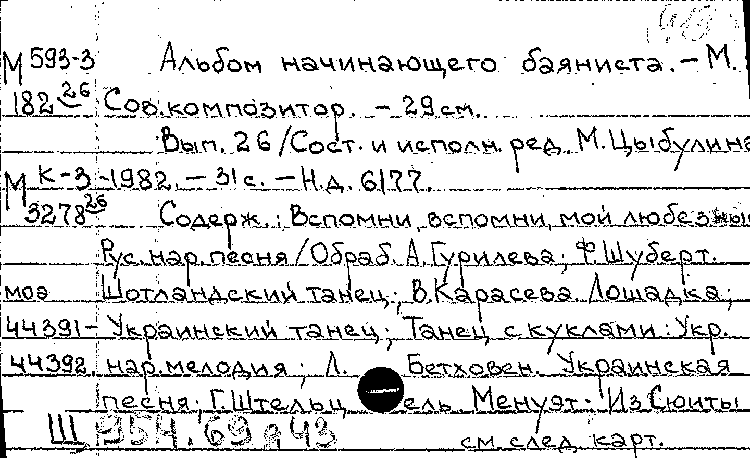 М 593-3 Альбом начинающего баяниста. – М.
182 26 Сов.композитор. – 29 см.
Вып. 26 / Сост. и исполн. ред. М. Цыбулина
М К-3 -1982. – 31 с. – Н.д. 6177.
3278 26 Содерж.: Вспомни, вспомни, мой любезный
Рус. нар. песня / Обраб. А. Гурилева; Ф. Шуберт.
моа Шотландский танец; В. Карасева. Лошадка;
44391- Украинский танец; Танец с куклами: Укр.
44392. нар. мелодия; Л. Бетховен. Украинская
песня; Г. Штельц ель. Менуэт: Из Сюиты
Ш 954.69 а 43 см. след. карт.